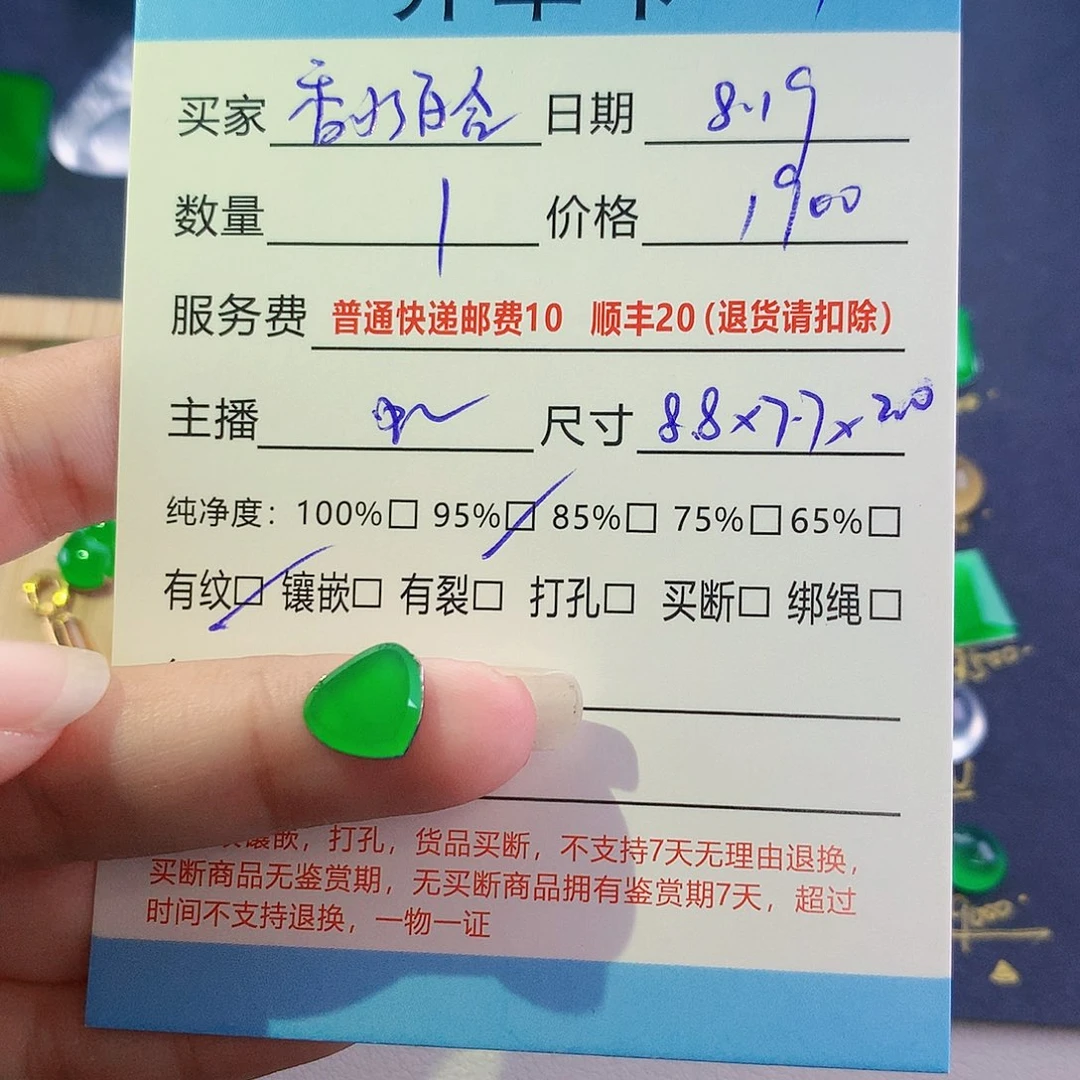 买家 香水百合 日期 8.19
数量 1 价格 1900
服务费 普通快递邮费10 顺丰20(退货请扣除)
主播 尺寸 8.8×7.7×2.0
纯净度：100%□ 95%☑ 85%□ 75%□ 65%□
有纹☑ 镶嵌□ 有裂□ 打孔□ 买断□ 绑绳□
镶嵌，打孔，货品买断，不支持7天无理由退换，
买断商品无鉴赏期，无买断商品拥有鉴赏期7天，超过
时间不支持退换，一物一证